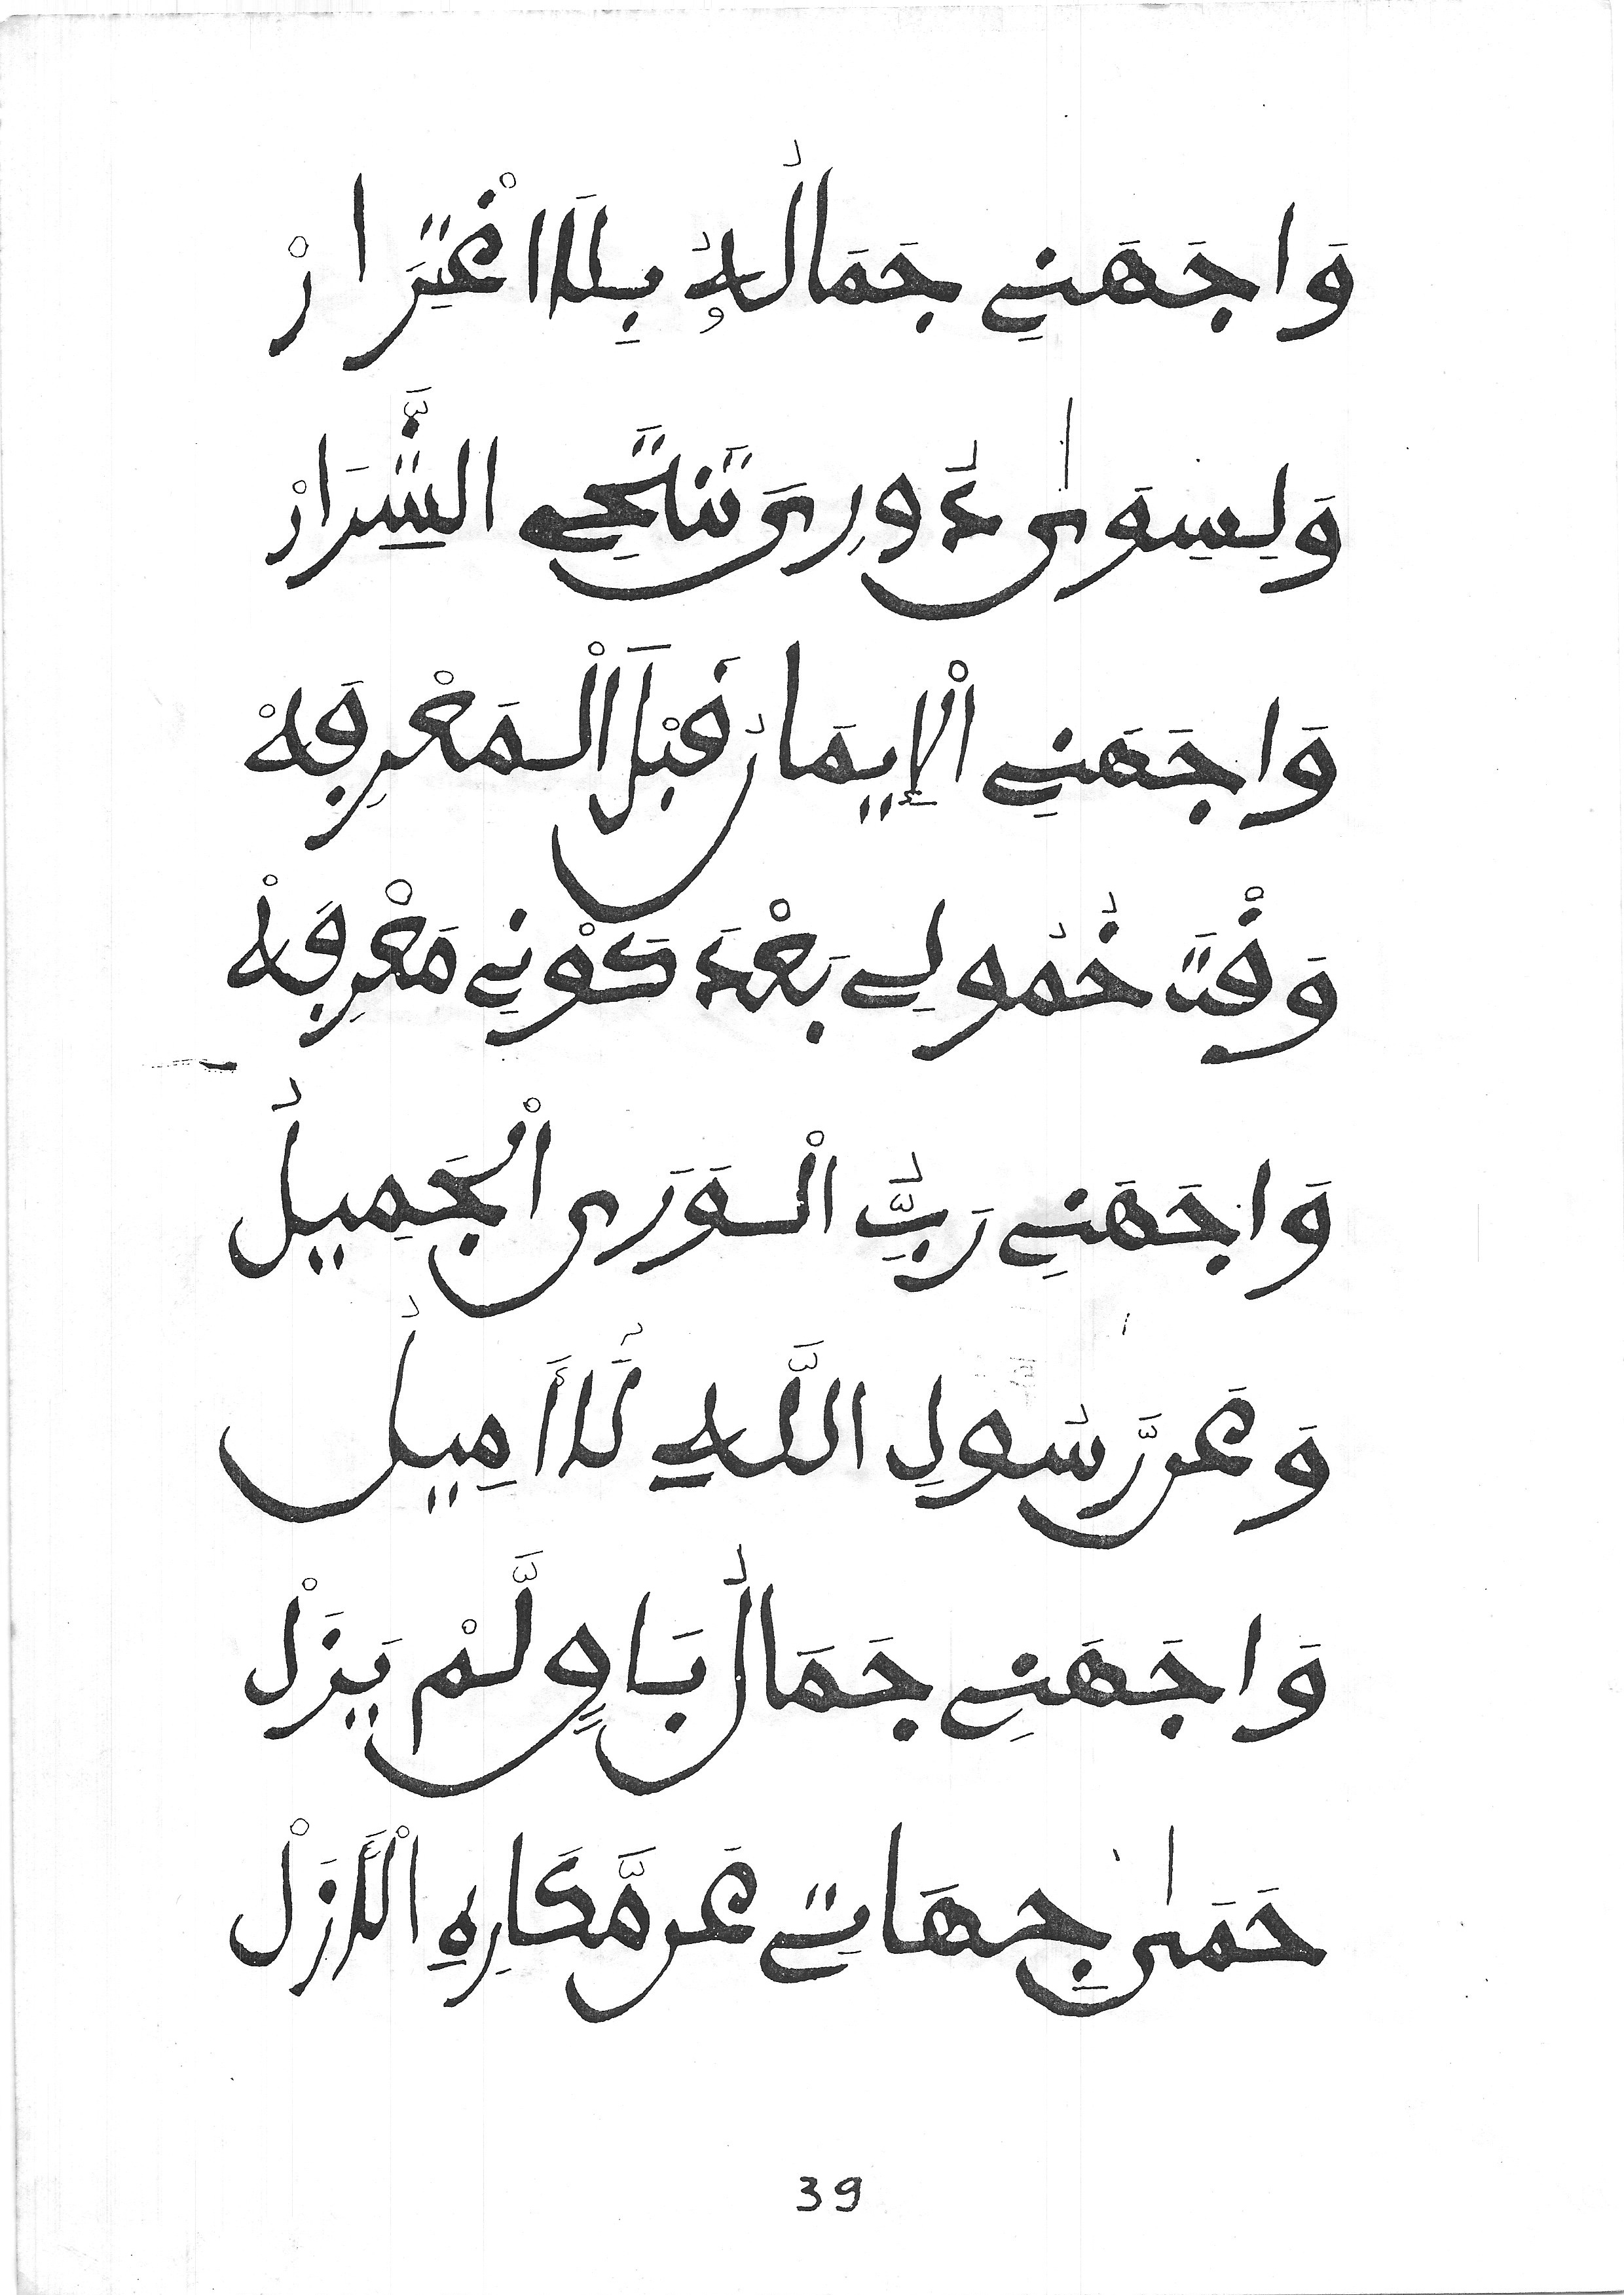 وَاجَهَنِي جَمَالُهُ بِلَا اغْتِرَارْ
وَلِسِوَىٰ دُورِىَ تَنْتَحِي الشِّرَارْ
وَاجَهَنِي الْإِيمَانُ قَبْلَ الْمَعْرِفَهْ
وَقْتَ خُمُولِي بَعْدَ كَوْنِي مَعْرِفَهْ
وَاجَهَنِي رَبُّ الْوَرَى الْجَمِيلُ
وَعَن رَّسُولِ اللَّهِ لَا أَمِيلُ
وَاجَهَنِي جَمَالُ بَاقٍ لَّمْ يَزَلْ
حَمَىٰ جِهَاتِي عَن مَّكَارِهِ الْأَزَلْ
39